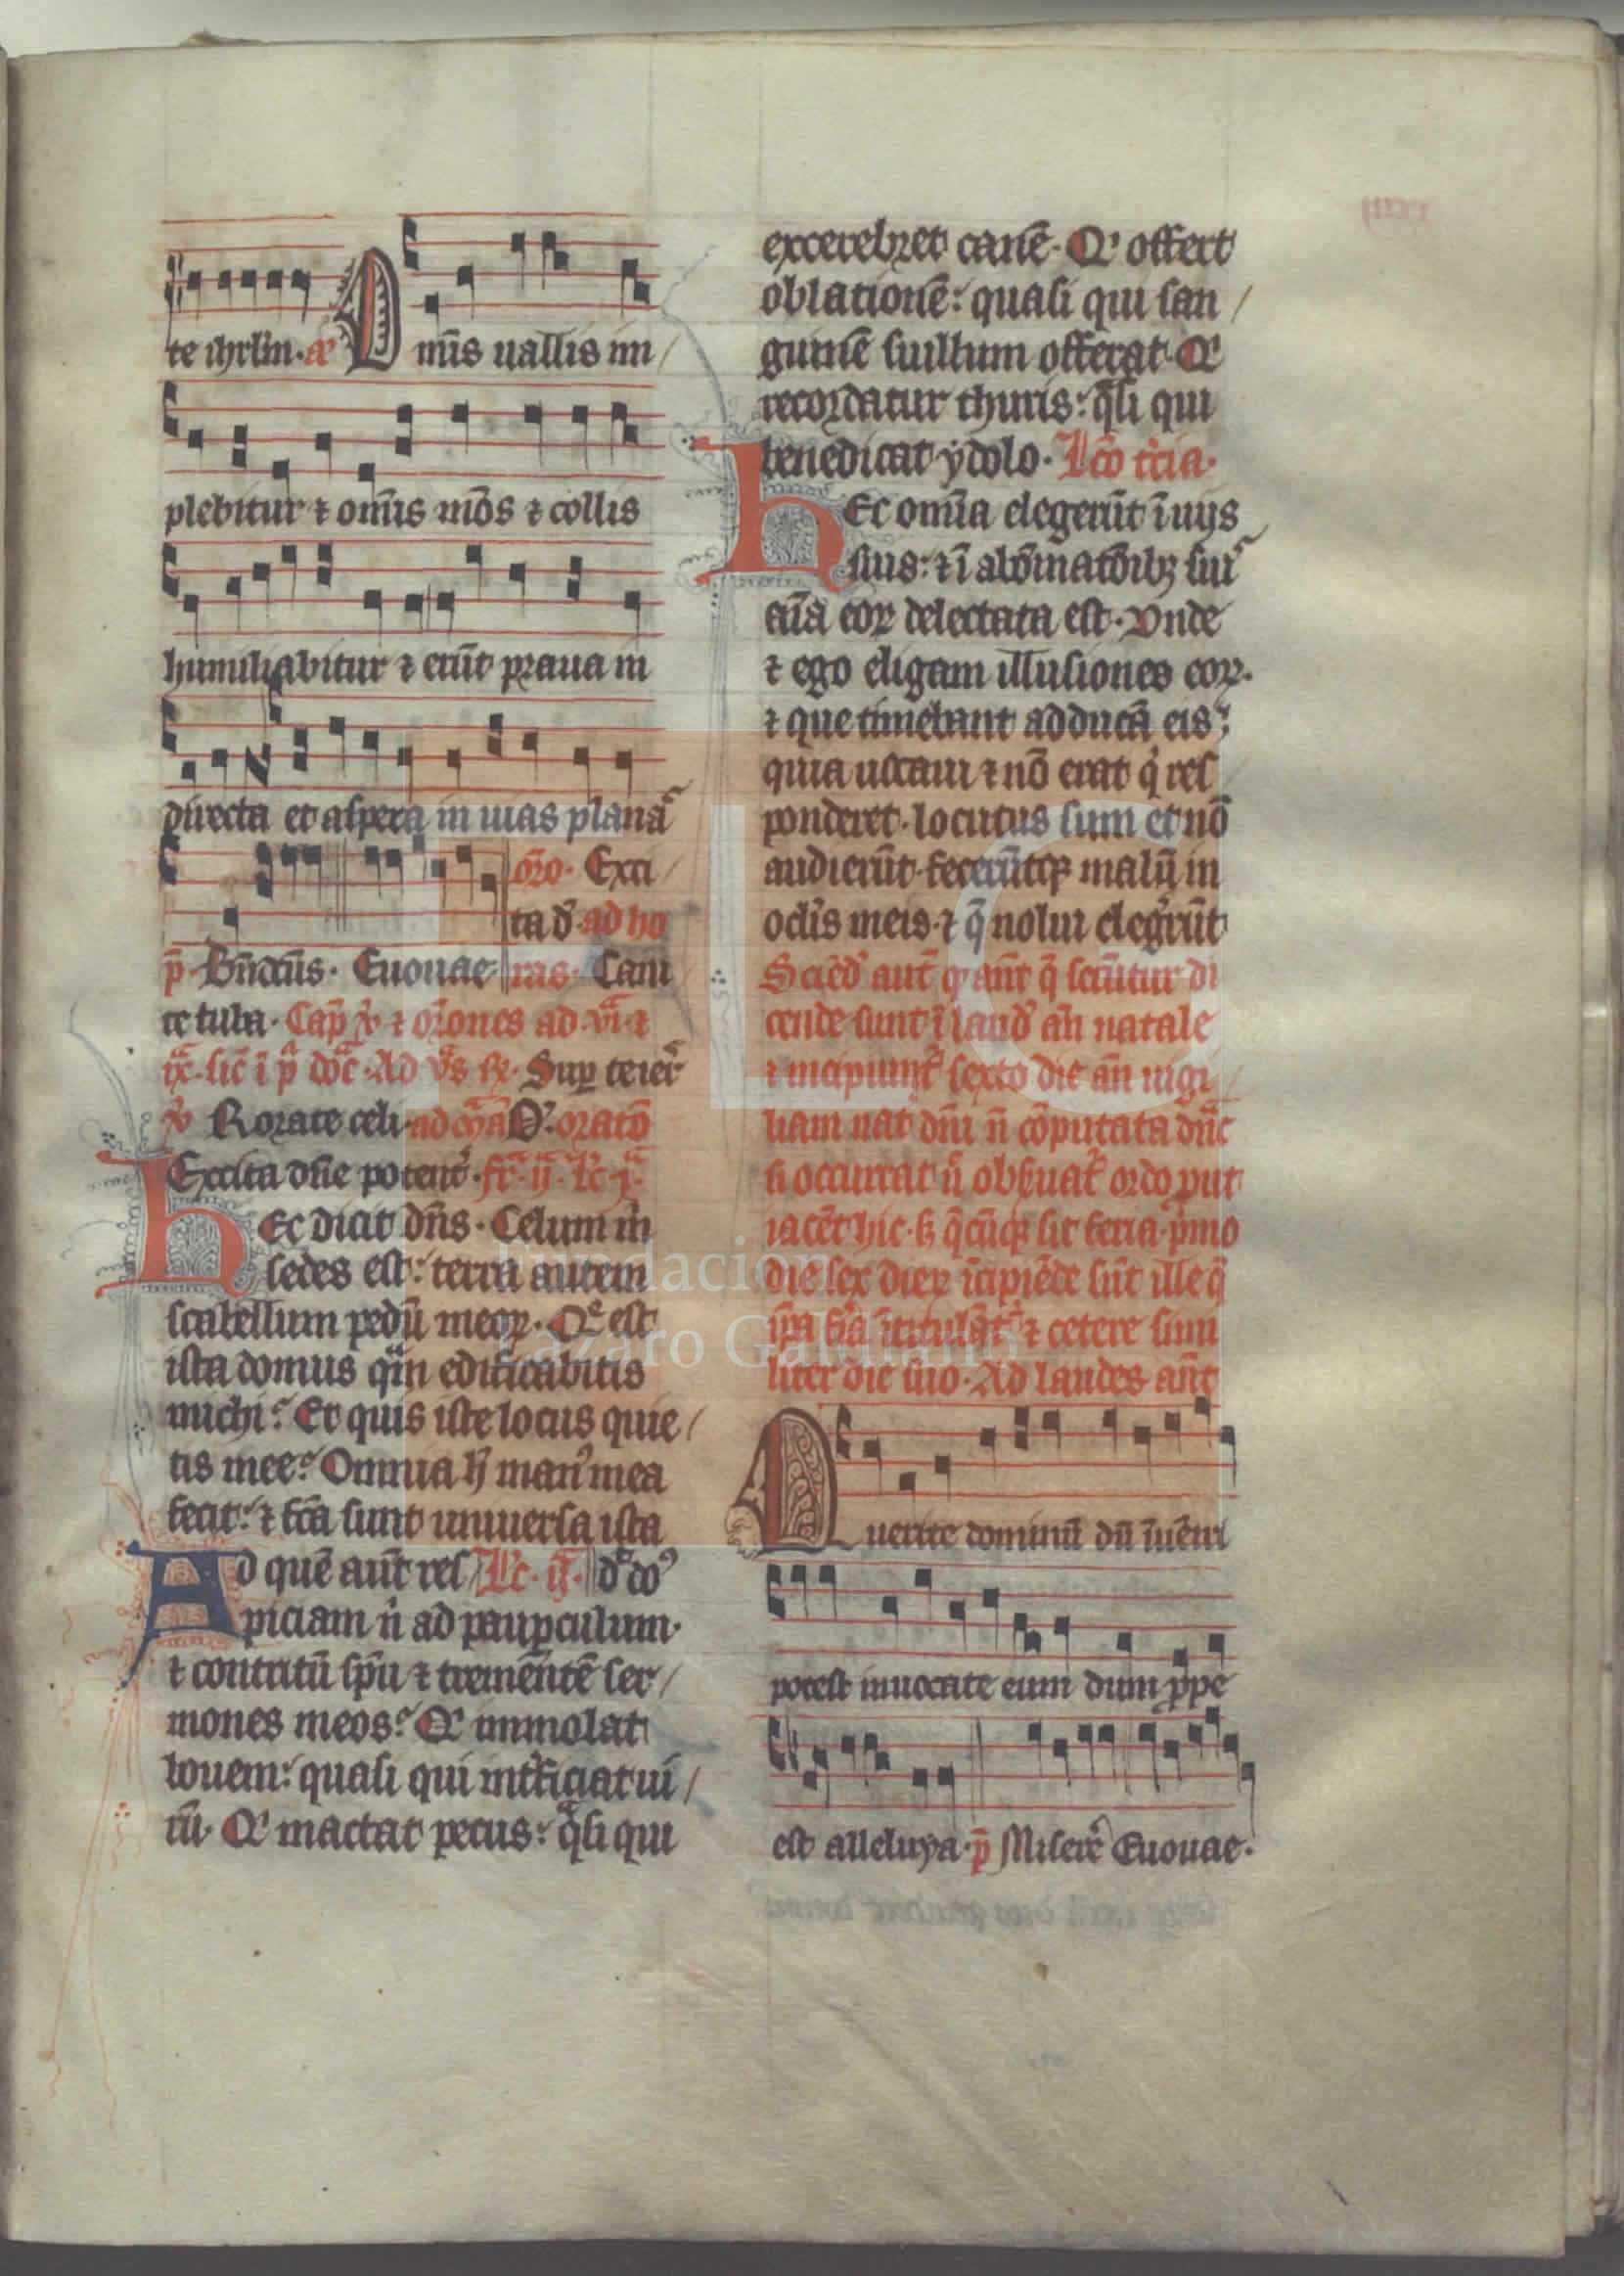 te ihrlm. a᷒ Omīs uallis im/
plebitur ⁊ om̄is mōs ⁊ collis
humiliabitur ⁊ erūt praua in
directa et aspera in uias planas
or̄o. Exci/
ta d̄. ad ho
p̄. Bn̄dctūs. Euouae ras. Cani
te tuba. Cap̄ v̄ ⁊ or̄ones ad .vi. ⁊
ix. sic̄ ī p̄ Sup te ier̄
v̄ Rorate celi ad O. oratō
Excita dn̄e potent̄. fr̄. ij. lc̄ j.
hEc dicit dn̄s. Celum m̄
sedes est: terra autem
scabellum pedū meoꝝ. Q̄ est
ista domus qm̄ edificabitis
michi: Et quis iste locus quie/
tis mee: Omnia h̄ man᷒ mea
fecit: ⁊ fc̄a sunt uniuersa ista
Ad quē aūt res Lc̄. ij. d̄ do᷒
piciam n̄ ad paupculum.
⁊ contritū sp̄u ⁊ trementē ser/
mones meos: Q᷒ immolat
bouem: quasi qui int̄ficiat ui/
rū. Q᷒ mactat pecus: q̄si qui
excerebret canē. Q᷒ offert
oblationē: quasi qui san/
guinē suillum offerat. Q᷒
recordatur thuris: q̄si qui
benedicat ydolo. Lc̄o t̄cia.
hEc om̄ia elegerūt ī uijs
suis: ⁊ ī abōīnatōibꝫ sui᷒
aīa eoꝝ delectata est. Vnde
⁊ ego eligam illusiones eoꝝ.
⁊ que timebant adducā eis;
quia uocaui ⁊ nō erat q̄ res
ponderet. locutus sum et nō
audierūt. fecerūtqꝫ malū in
oclīs meis. ⁊ q̄ nolui eleḡrūt
Sciēd̄ aūt ꝙ an̄t q̄ secūtur di
cende sunt ī laud̄ an̄ natale
⁊ incipiunt᷒ sexto die an̄ uigi
liam nat̄ dn̄i n̄ cōputata dn̄ic̄
si occurrat n̄ obseruat᷒ ordo prut
iacēt hic. s̄ q̄cūqꝫ sit feria. p̄mo
die sex dieꝝ īcipiēde sūt ille q̄
ip̄a fr̄a ītitulāt᷒ ⁊ cetere simi
liter die suo. Ad laudes an̄t
Querite dominū dū īuēiri
potest inuocate eum dum prpe
est alleluya. p̄ Miserē Euouae.
Fundación
Lázaro Galdiano